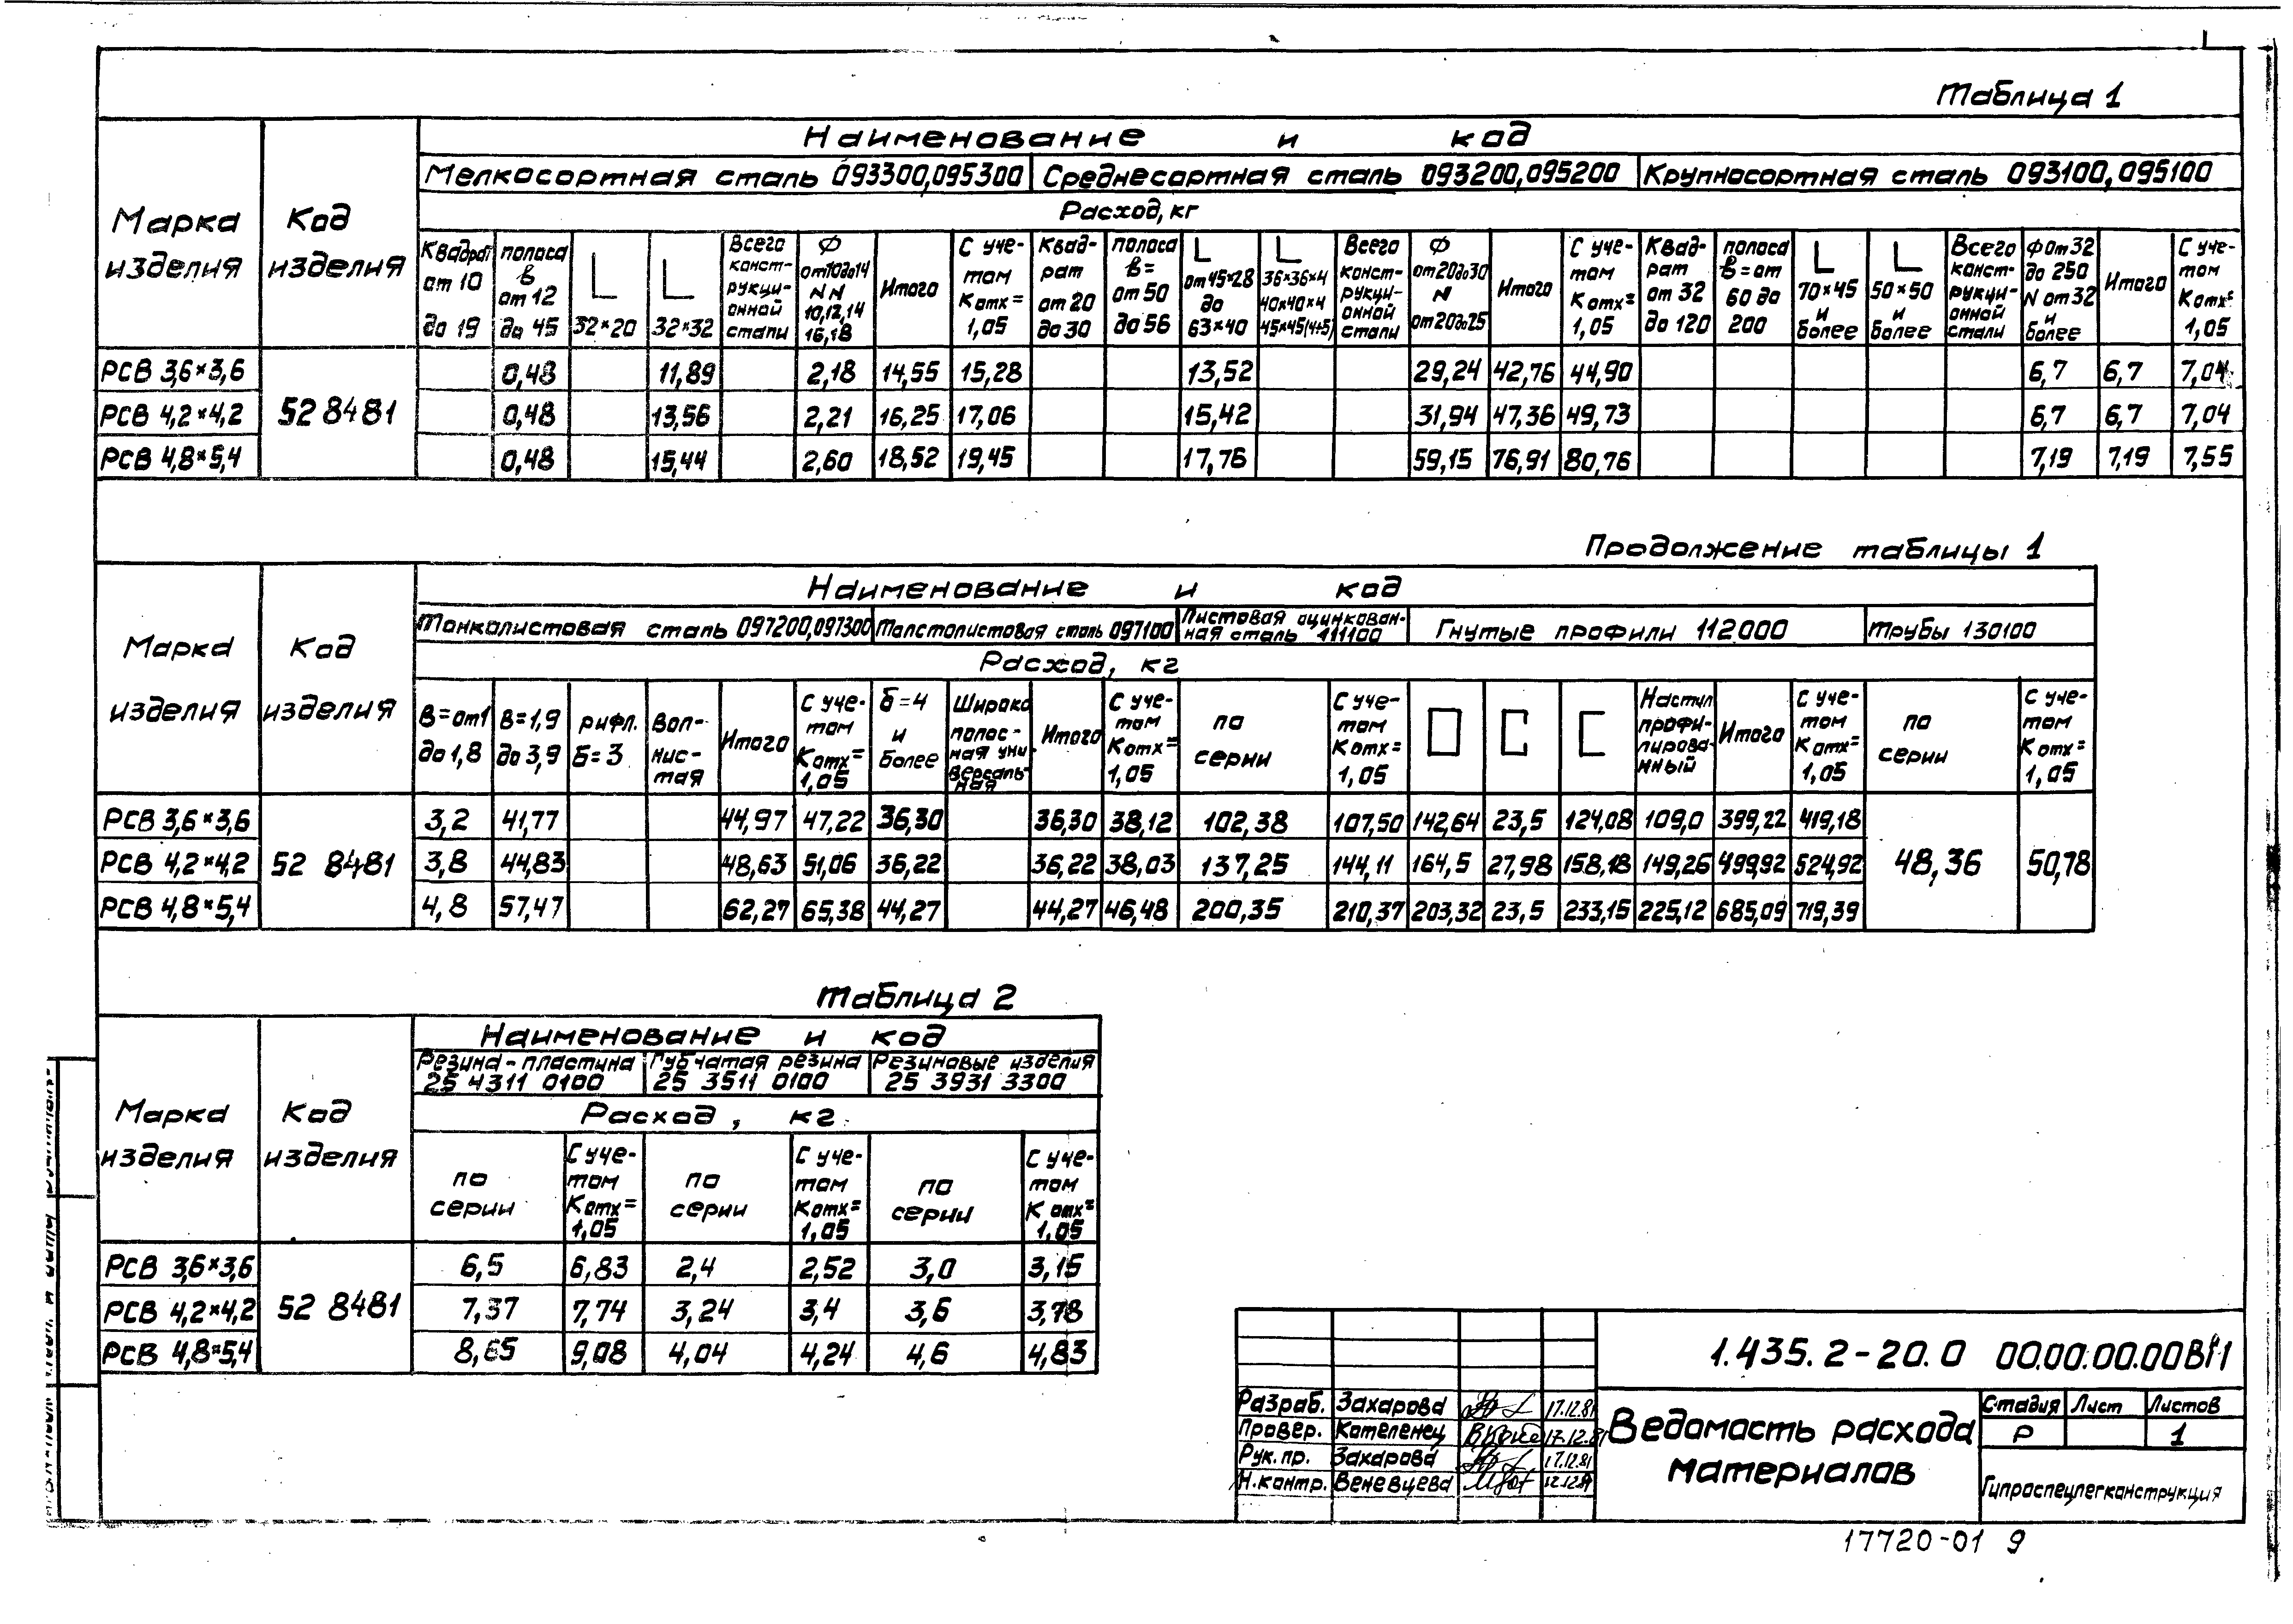 Таблица 1
Марка изделия
Код изделия
Наименование и код
Мелкосортная сталь 093300,095300
Среднесортная сталь 093200,095200
Крупносортная сталь 093100,095100
Расход, кг
Квадрат от 10 до 19
полоса В от 12 до 45
32×20
32×32
Всего конструкционной стали
Ф от10до14 N N 10,12,14 16,18
Итого
С учетом Котх= 1,05
Квадрат от 20 до 30
полоса В= от 50 до 56
от 45×28 до 63×40
36×36×4 40×40×4 45×45(4÷5)
Всего конструкционной стали
Ф от20до30 N от20до25
Итого
С учетом Котх= 1,05
Квадрат от 32 до 120
полоса В=от 60 до 200
70×45 и более
50×50 и более
Всего конструкционной стали
Ф от 32 до 250 N от 32 и более
Итого
С учетом Котх= 1,05
РСВ 3,6×3,6 0,48 11,89 2,18 14,55 15,28 13,52 29,24 42,76 44,90 6,7 6,7 7,04
РСВ 4,2×4,2 52 8481 0,48 13,56 2,21 16,25 17,06 15,42 31,94 47,36 49,73 6,7 6,7 7,04
РСВ 4,8×5,4 0,48 15,44 2,60 18,52 19,45 17,76 59,15 76,91 80,76 7,19 7,19 7,55
Продолжение таблицы 1
Марка изделия
Код изделия
Наименование и код
Тонколистовая сталь 097200,097300
Толстолистовая сталь 097100
Листовая оцинкованная сталь 111100
Гнутые профили 112000
Трубы 130100
Расход, кг
В=от1 до 1,8
В=1,9 до 3,9
рифл. Б=3
Волнистая
Итого
С учетом Котх= 1,05
Б=4 и более
Широкополосная универсальная
Итого
С учетом Котх= 1,05
по серии
С учетом Котх= 1,05
Настил профилированный
Итого
С учетом Котх= 1,05
по серии
С учетом Котх= 1,05
РСВ 3,6×3,6 3,2 41,77 44,97 47,22 36,30 36,30 38,12 102,38 107,50 142,64 23,5 124,08 109,0 399,22 419,18
РСВ 4,2×4,2 52 8481 3,8 44,83 48,63 51,06 36,22 36,22 38,03 137,25 144,11 164,5 27,98 158,18 149,26 499,92 524,92 48,36 50,78
РСВ 4,8×5,4 4,8 57,47 62,27 65,38 44,27 44,27 46,48 200,35 210,37 203,32 23,5 233,15 225,12 685,09 719,39
Таблица 2
Марка изделия
Код изделия
Наименование и код
Резина-пластина 25 4311 0100
Губчатая резина 25 3511 0100
Резиновые изделия 25 3931 3300
Расход, кг
по серии
С учетом Котх= 1,05
по серии
С учетом Котх= 1,05
по серии
С учетом Котх= 1,05
РСВ 3,6×3,6 6,5 6,83 2,4 2,52 3,0 3,15
РСВ 4,2×4,2 52 8481 7,37 7,74 3,24 3,4 3,6 3,78
РСВ 4,8×5,4 8,65 9,08 4,04 4,24 4,6 4,83
1.435.2-20.0 00.00.00.00ВМ1
Разраб. Захарова 17.12.81
Провер. Котеленец 17.12.81
Рук.пр. Захарова 17.12.81
Н.контр. Веневцева 17.12.81
Ведомасть расхода материалов
Стадия Лист Листов
Р 1
Гипроспецлегконструкция
17720-01 9